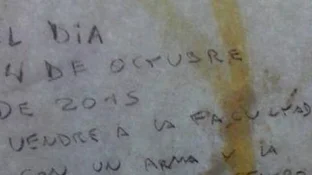 L DiA
4 DE OCTUBRE
DE 2015
VENDRE A LA FACULTAD
CON UN ARMA Y LA